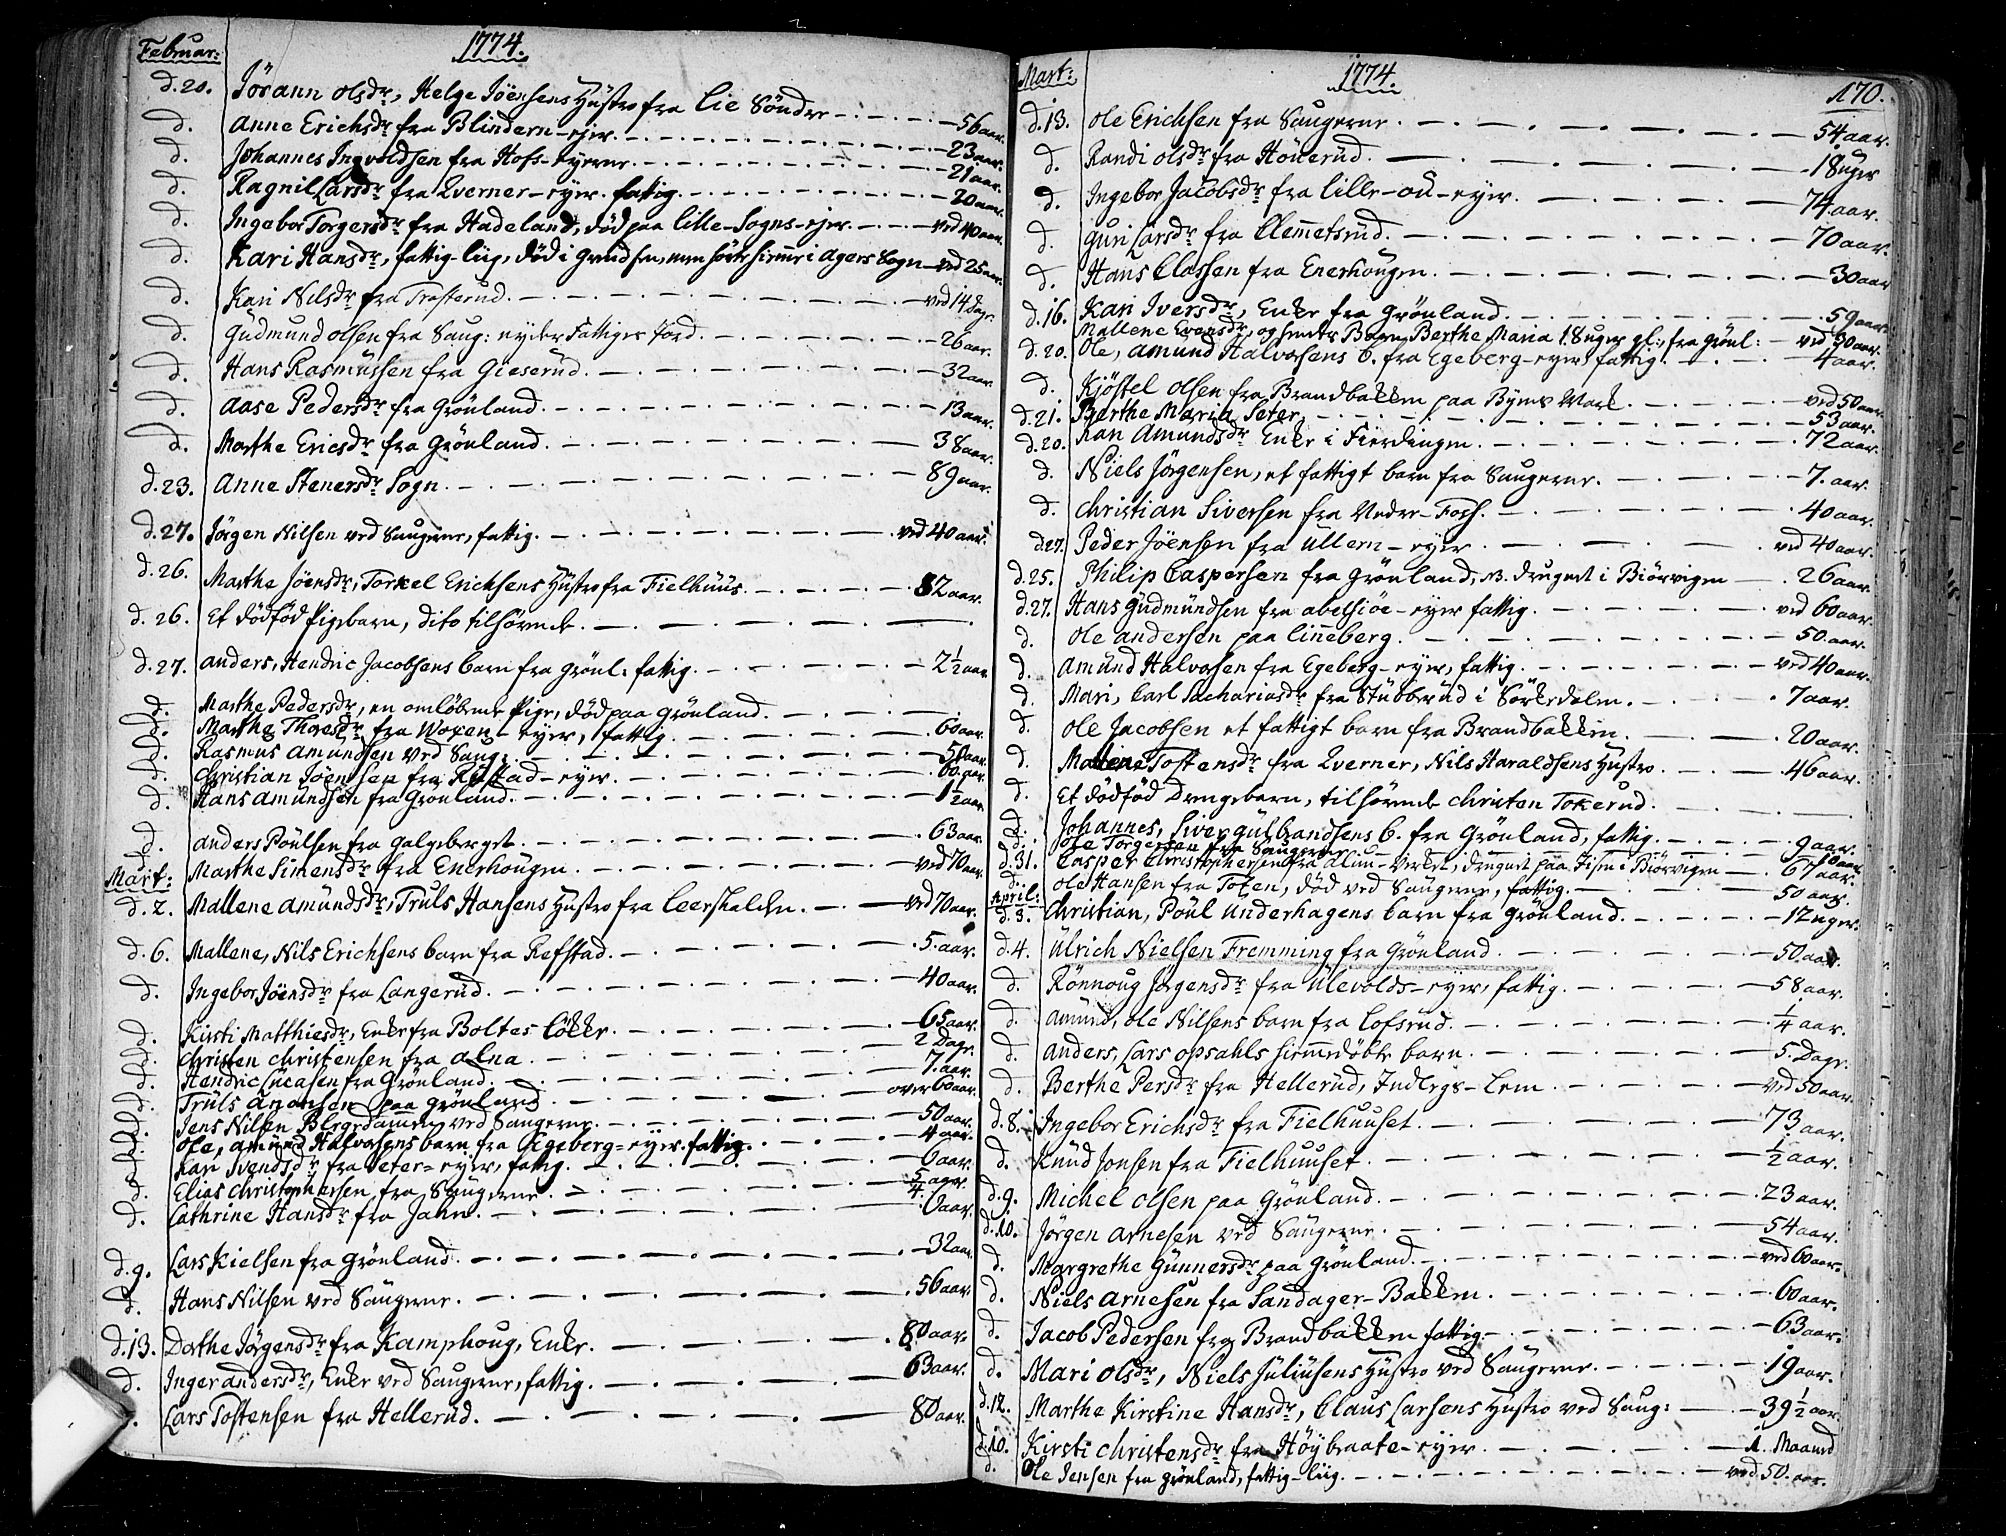 Februar: 1774.
d.20. Jöran Olsdr, Helge Jöensens Hustro fra Lie Söndre 56 aar.
d. Anne Erichsdr fra Blindern-ejer. 23 aar.
d. Johannes Ingvoldsen fra Hofs-eyerne. 21 aar.
d. Ragnil Larsdr fra Qverner-eyer. fattig. 20 aar.
d. Ingebor Torgersdr fra Hadeland, död paa lille-Sogns-ejer. ved 40 aar.
d. Kari Hansdr, fattig-liig, död i Grendsen, men hörte hiemme i Agers Sogn ved 25 aar.
d. Kari Nilsdr fra Trosterud. ved 14 Dage.
d. Gudmund Olsen fra Saug: nyder Fattiges Jord 26 aar.
d. Hans Rasmussen fra Gieserud. 32 aar.
d. Aase Pedersdr fra Grönland. 13 aar.
d. Marthe Ericsdr fra Grönland. 38 aar.
d.23. Anne Stenersdr Sogn. 89 aar.
d.27. Jörgen Nilsen ved Saugerne, fattig. ved 40 aar.
d.26. Marthe Jöensdr, Torkel Erichsens Hustro fra Fielhuus. 82 aar.
d.26. Et dödföd Pigebarn, dito tilhörende.
d.27. Anders, Hendric Jacobsens barn fra Grönl: fattig. 2 1/2 aar
d. Marthe Pedersdr, en omlöbende Pige, död paa Grönland.
d. Marthe Thoresdr fra Woxen-eyer, fattig 60 aar.
d. Rasmus Amundsen ved Saug: 50 aar.
d. Christian Jöensen fra Rustad-eyer. 60 aar.
d. Hans Amundsen fra Grönland. 1 1/2 aar.
d. Anders Poulsen fra Galgeberget. 63 aar.
d. Marthe Simensdr fra Enerhougen. ved 70 aar.
Mart:
d.2. Mallene Amundsdr, Truls Hansens Hustro fra Leerskalden. ved 70 aar.
d.6. Mallene, Nils Erichsens barn fra Refstad. 5. aar.
d. Ingebor Jöensdr fra Langerud. 40 aar.
d. Kirsti Matthiesdr, Enke fra Boltes Lökke. 65 aar.
d. Christen Christensen fra Alna. 2 Dage.
d. Hendric Lucasen fra Grönland. 7. aar.
d. Truls Anonsen paa Grönland over 60 aar.
d. Jens Nilsen ved Saugerne. 50 aar.
d. Ole, Amund Halvorsens barn fra Egeberg-eyer. fattig. 4 aar.
d. Kari Svendsdr fra Seter-eyer, fattig. aar.
d. Elias Christophersen fra Saugerne. 5/4 aar.
d. Cathrine Hansdr fra Jahrn. aar.
d.9. Lars Kielsen fra Grönland. 32 aar.
d. Hans Nilsen ved Saugerne. 56 aar.
d.13. Dorthe Jörgensdr fra Kamphoug, Enke. 80 aar.
d. Inger Andersdr, Enke ved Saugerne, fattig. 63 aar.
Lars Tostensen fra Hellerud. 80 aar.
Mart: 1774. 170.
d.13. Ole Erichsen fra Saugerne. 54 aar.
d. Randi Olsdr fra Hönerud. 18 uger
d. Ingebor Jacobsdr fra Lille-Ou-eyer. 74 aar.
d. Guri Larsdr fra Clemetsrud. 70 aar.
d. Hans Classen fra Enerhougen. 30 aar
d.16. Kari Iversdr, Enke fra Grönland. 59 aar.
Mallene Evensdr, og hendes Barn Berthe Maria 18 uger gl., fra Grönl: ved 30 aar.
d.20. Ole, Amund Halvorsens b. fra Egeberg-eyer, fattig. 4 aar.
d. Kjöstel Olsen fra Brandbakken paa Byens Mark. ved 50 aar.
d.21. Berthe Maria Seter. 53 aar.
d.20. Kari Amundsdr Enke i Fierdingen. 72 aar.
d. Niels Jörgensen, et fattigt barn fra Saugerne. 7. aar.
d. Christian Siversen fra Nedre-Foss. 40 aar.
d.27. Peder Jöensen fra Ullern-eyer ved 40 aar.
d.25. Philip Caspersen fra Grönland, NB. druknet i Biörvigen 26 aar.
d.27. Hans Gudmundsen fra Abelsiöe-eyer fattig. ved 60 aar.
d. Ole Andersen paa Linneberg. 50. aar.
d. Amund Halvorsen fra Egeberg-eyer, fattig. ved 40 aar.
d. Mari, Carl Zachariasdr fra Stubberud i Sörkedalen. 7 aar.
d. Ole Jacobsen et fattigt barn fra Brandbakken. 20 aar.
d. Malene Tostensdr fra Qverner, Nils Haraldsens Hustro. 46 aar.
d. Et dödföd Drengebarn, tilhörende Christen Tokerud.
d. Johannes, Siver Gulbrandsens b. fra Grönland, fattig. 9 aar.
d. Ole Torgersen fra Saugerne aar.
d.31. Casper Christophersen fra Alun-Verket, druknet paa Isen i Biörvigen 67 aar.
d. Ole Hansen fra Toten, död ved Saugerne, fattig. 50 aar.
April:
d.3. Christian, Poul Underhagens barn fra Grönland. 12 uger.
d.4. Ulrich Nielsen Fremming fra Grönland. 50. aar.
d. Rönnoug Jörgensdr fra Ulevolds-eyer, fattig. 58 aar.
d. Amund, Ole Nilsens barn fra Lofsrud. 1/4 aar.
d. Anders, Lars Opsahls hiemmedöbte barn. 5. Dage.
d. Berthe Persdr fra Hellerud, Indlegs-Lem ved 50 aar.
d.8. Ingebor Erichsdr fra Fielhuuset. 73 aar.
d. Knud Jonsen fra Fielhuuset. 1/2 aar.
d.9. Michel Olsen paa Grönland. 23 aar.
d.10. Jörgen Arnesen ved Saugerne. 54 aar.
d. Margrethe Gunnersdr paa Grönland. ved 60 aar.
d. Niels Arnesen fra Sandager-Bakken. 60 aar.
d. Jacob Pedersen fra Brandbakken fattig. 63 aar.
d. Mari Olsdr, Niels Juliusens Hustro ved Saugerne. 19 aar.
d.12. Marthe Kirstine Hansdr, Claus Larsens Hustro ved Saug: 39 1/2 aar.
d.10. Kirsti Christensdr fra Höybraate-eyer. 1. Maaned
d. Ole Jensen fra Grönland, fattig-liig. ved 50. aar.